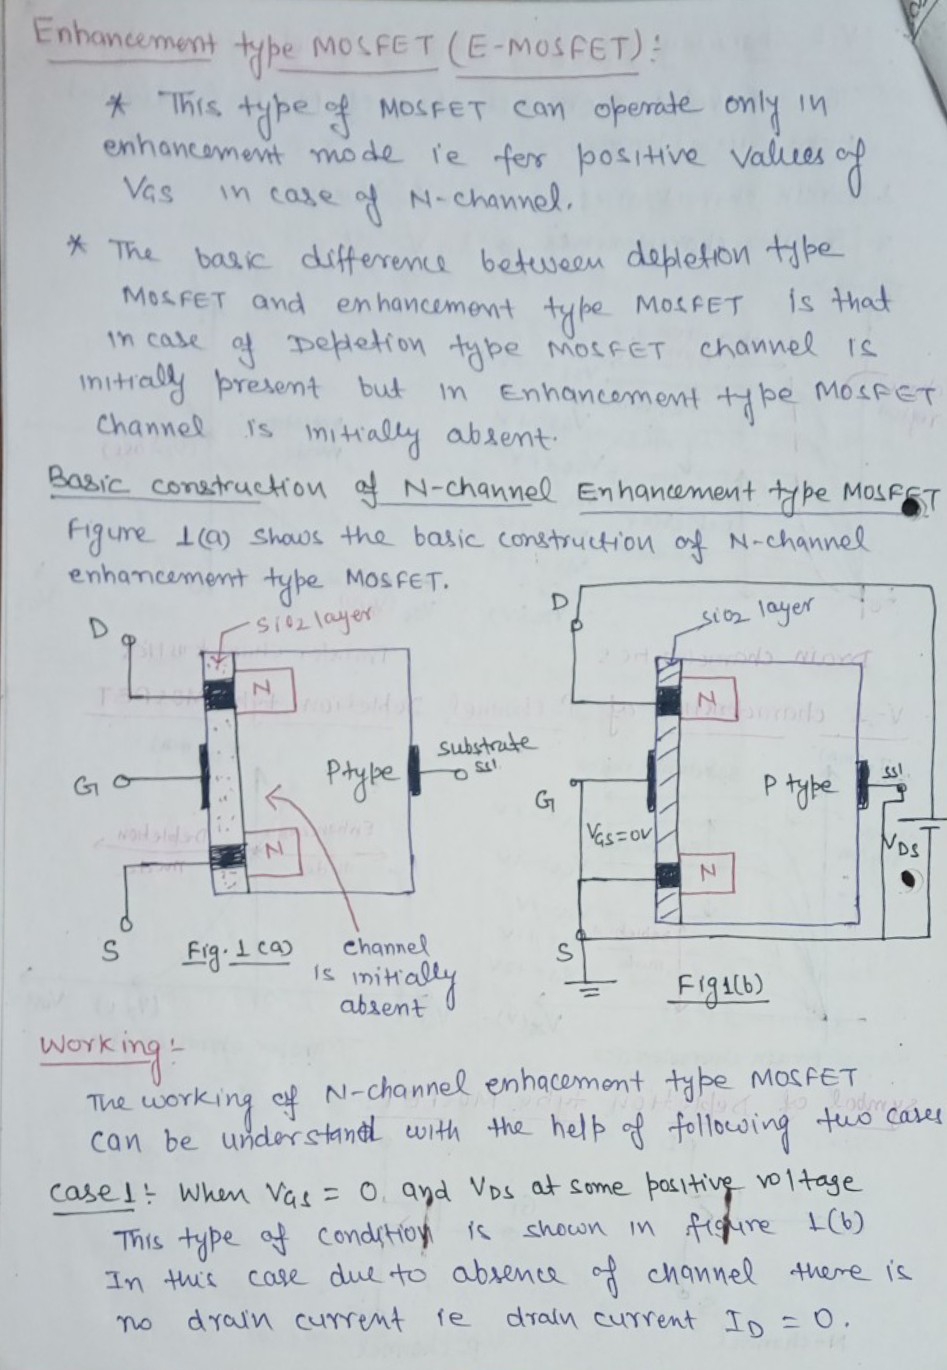 Enhancement type MOSFET (E-MOSFET):
* This type of MOSFET can operate only in
enhancement mode ie for positive values of
VGS in case of N-channel.
* The basic difference between depletion type
MOSFET and enhancement type MOSFET is that
in case of Depletion type MOSFET channel is
initially present but in Enhancement type MOSFET
Channel is initially absent.
Basic construction of N-channel Enhancement type MOSFET
Figure 1(a) shows the basic construction of N-channel
enhancement type MOSFET.
D
SiO2 layer
N
P type
substrate
SS'
G
N
S
Fig. 1 (a)
channel
is initially
absent
D
SiO2 layer
N
P type
SS'
G
VGS=0V
VDS
N
S
Fig 1(b)
Working:-
The working of N-channel enhacement type MOSFET
can be understand with the help of following two cases
Case 1:- When VGS = 0 and VDS at some positive voltage
This type of condition is shown in figure 1(b)
In this case due to absence of channel there is
no drain current ie drain current ID = 0.